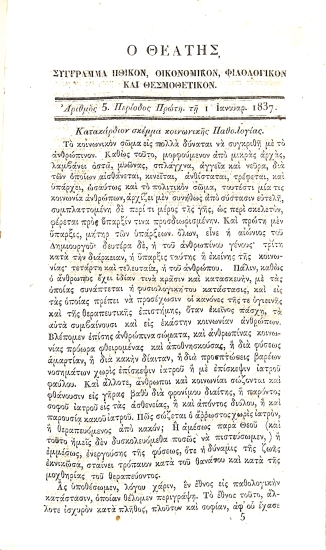 Ο ΘΕΑΤΗΣ
ΣΥΓΓΡΑΜΜΑ ΗΘΙΚΟΝ, ΟΙΚΟΝΟΜΙΚΟΝ, ΦΙΛΟΛΟΓΙΚΟΝ
ΚΑΙ ΘΕΣΜΟΘΕΤΙΚΟΝ.
Ἀριθμὸς 5. Περίοδος Πρώτη. τῇ 1 Ἰανουαρ. 1837.
Κατακάρδιον σκέμμα κοινωνικῆς Παθολογίας.
Τὸ κοινωνικὸν σῶμα εἰς πολλὰ δύναται νὰ συγκριθῇ μὲ τὸ
ἀνθρώπινον. Καθὼς τοῦτο, μορφούμενον ἀπὸ μικρὰς ἀρχάς,
λαμβάνει ὀστᾶ, μυῶνας, σπλάγχνα, ἀγγεῖα καὶ νεῦρα, διὰ
τῶν ὁποίων αἰσθάνεται, κινεῖται, ἀνθίσταται, τρέφεται, καὶ
ὑπάρχει, ὡσαύτως καὶ τὸ πολιτικὸν σῶμα, τουτέστι μία τις
κοινωνία ἀνθρώπων, ἀρχίζει μὲν συνήθως ἀπὸ σύστασιν εὐτελῆ,
συμπλαττομένη δὲ περί τι μέρος τῆς γῆς, ὡς περὶ σκελετόν,
φέρεται πρὸς ὕπαρξίν τινα προσδιωρισμένην. Καὶ πρώτη μὲν
ὕπαρξις, μήτηρ τῶν ὑπάρξεων ὅλων, εἶνε ἡ αἰώνιος τοῦ
Δημιουργοῦ· δευτέρα δὲ, ἡ τοῦ ἀνθρωπίνου γένους· τρίτη
κατὰ τὴν διάρκειαν, ἡ ὕπαρξις ταύτης ἢ ἐκείνης τῆς κοινω-
νίας· τετάρτη καὶ τελευταία, ἡ τοῦ ἀνθρώπου. Πάλιν, καθὼς
ὁ ἄνθρωπος ἔχει ἰδίαν τινὰ κρᾶσιν καὶ κατασκευὴν, μὲ τὰς
ὁποίας συνάπτεται ἡ φυσιολογική του κατάστασις, καὶ εἰς
τὰς ὁποίας πρέπει νὰ προσέχωσιν οἱ κανόνες τῆς τε ὑγιεινῆς
καὶ τῆς θεραπευτικῆς ἐπιστήμης, ὅταν ἐκεῖνος πάσχῃ, τὰ
αὐτὰ συμβαίνουσι καὶ εἰς ἑκάστην κοινωνίαν ἀνθρώπων.
Βλέπομεν ἐπίσης ἀνθρώπινα σώματα, καὶ ἀνθρωπίνας κοινω-
νίας πρόωρα φθειρομένας καὶ ἀποθνησκούσας, ἢ διὰ φύσεως
ἁμαρτίαν, ἢ διὰ κακὴν δίαιταν, ἢ διὰ προσπτώσεις βαρέων
νοσημάτων χωρὶς ἐπίσκεψιν ἰατροῦ ἢ μὲ ἐπίσκεψιν ἰατροῦ
φαύλου. Καὶ ἄλλοτε, ἄνθρωποι καὶ κοινωνίαι σώζονται καὶ
φθάνουσιν εἰς γῆρας βαθὺ διὰ φρονίμου διαίτης, ἢ παρόντος
σοφοῦ ἰατροῦ εἰς τὰς ἀσθενείας, ἢ καὶ ἀπόντος διόλου, ἢ καὶ
παρουσίᾳ κακοῦ ἰατροῦ. Πῶς σώζεται ὁ ἄῤῥωστος χωρὶς ἰατρόν,
ἢ θεραπευόμενος ἀπὸ κακόν; Ἢ ἀμέσως παρὰ Θεοῦ (καὶ
τοῦτο ἡμεῖς δὲν δυσκολευόμεθα ποσῶς νὰ πιστεύσωμεν,) ἢ
ἐμμέσως, ἐνεργούσης τῆς φύσεως, ὅτε ἡ δύναμις τῆς ζωῆς
ἐκνικῶσα, σταίνει τρόπαιον κατὰ τοῦ θανάτου καὶ κατὰ τῆς
μοχθηρίας τοῦ θεραπεύοντος.
Ἂς ὑποθέσωμεν, λόγου χάριν, ἓν ἔθνος εἰς παθολογικὴν
κατάστασιν, ὁποίαν θέλομεν περιγράψῃ. Τὸ ἔθνος τοῦτο, ἄλ-
λοτε ἰσχυρὸν κατὰ πλῆθος, πλοῦτον καὶ σοφίαν, ἀφ' οὗ ἔχασε
5